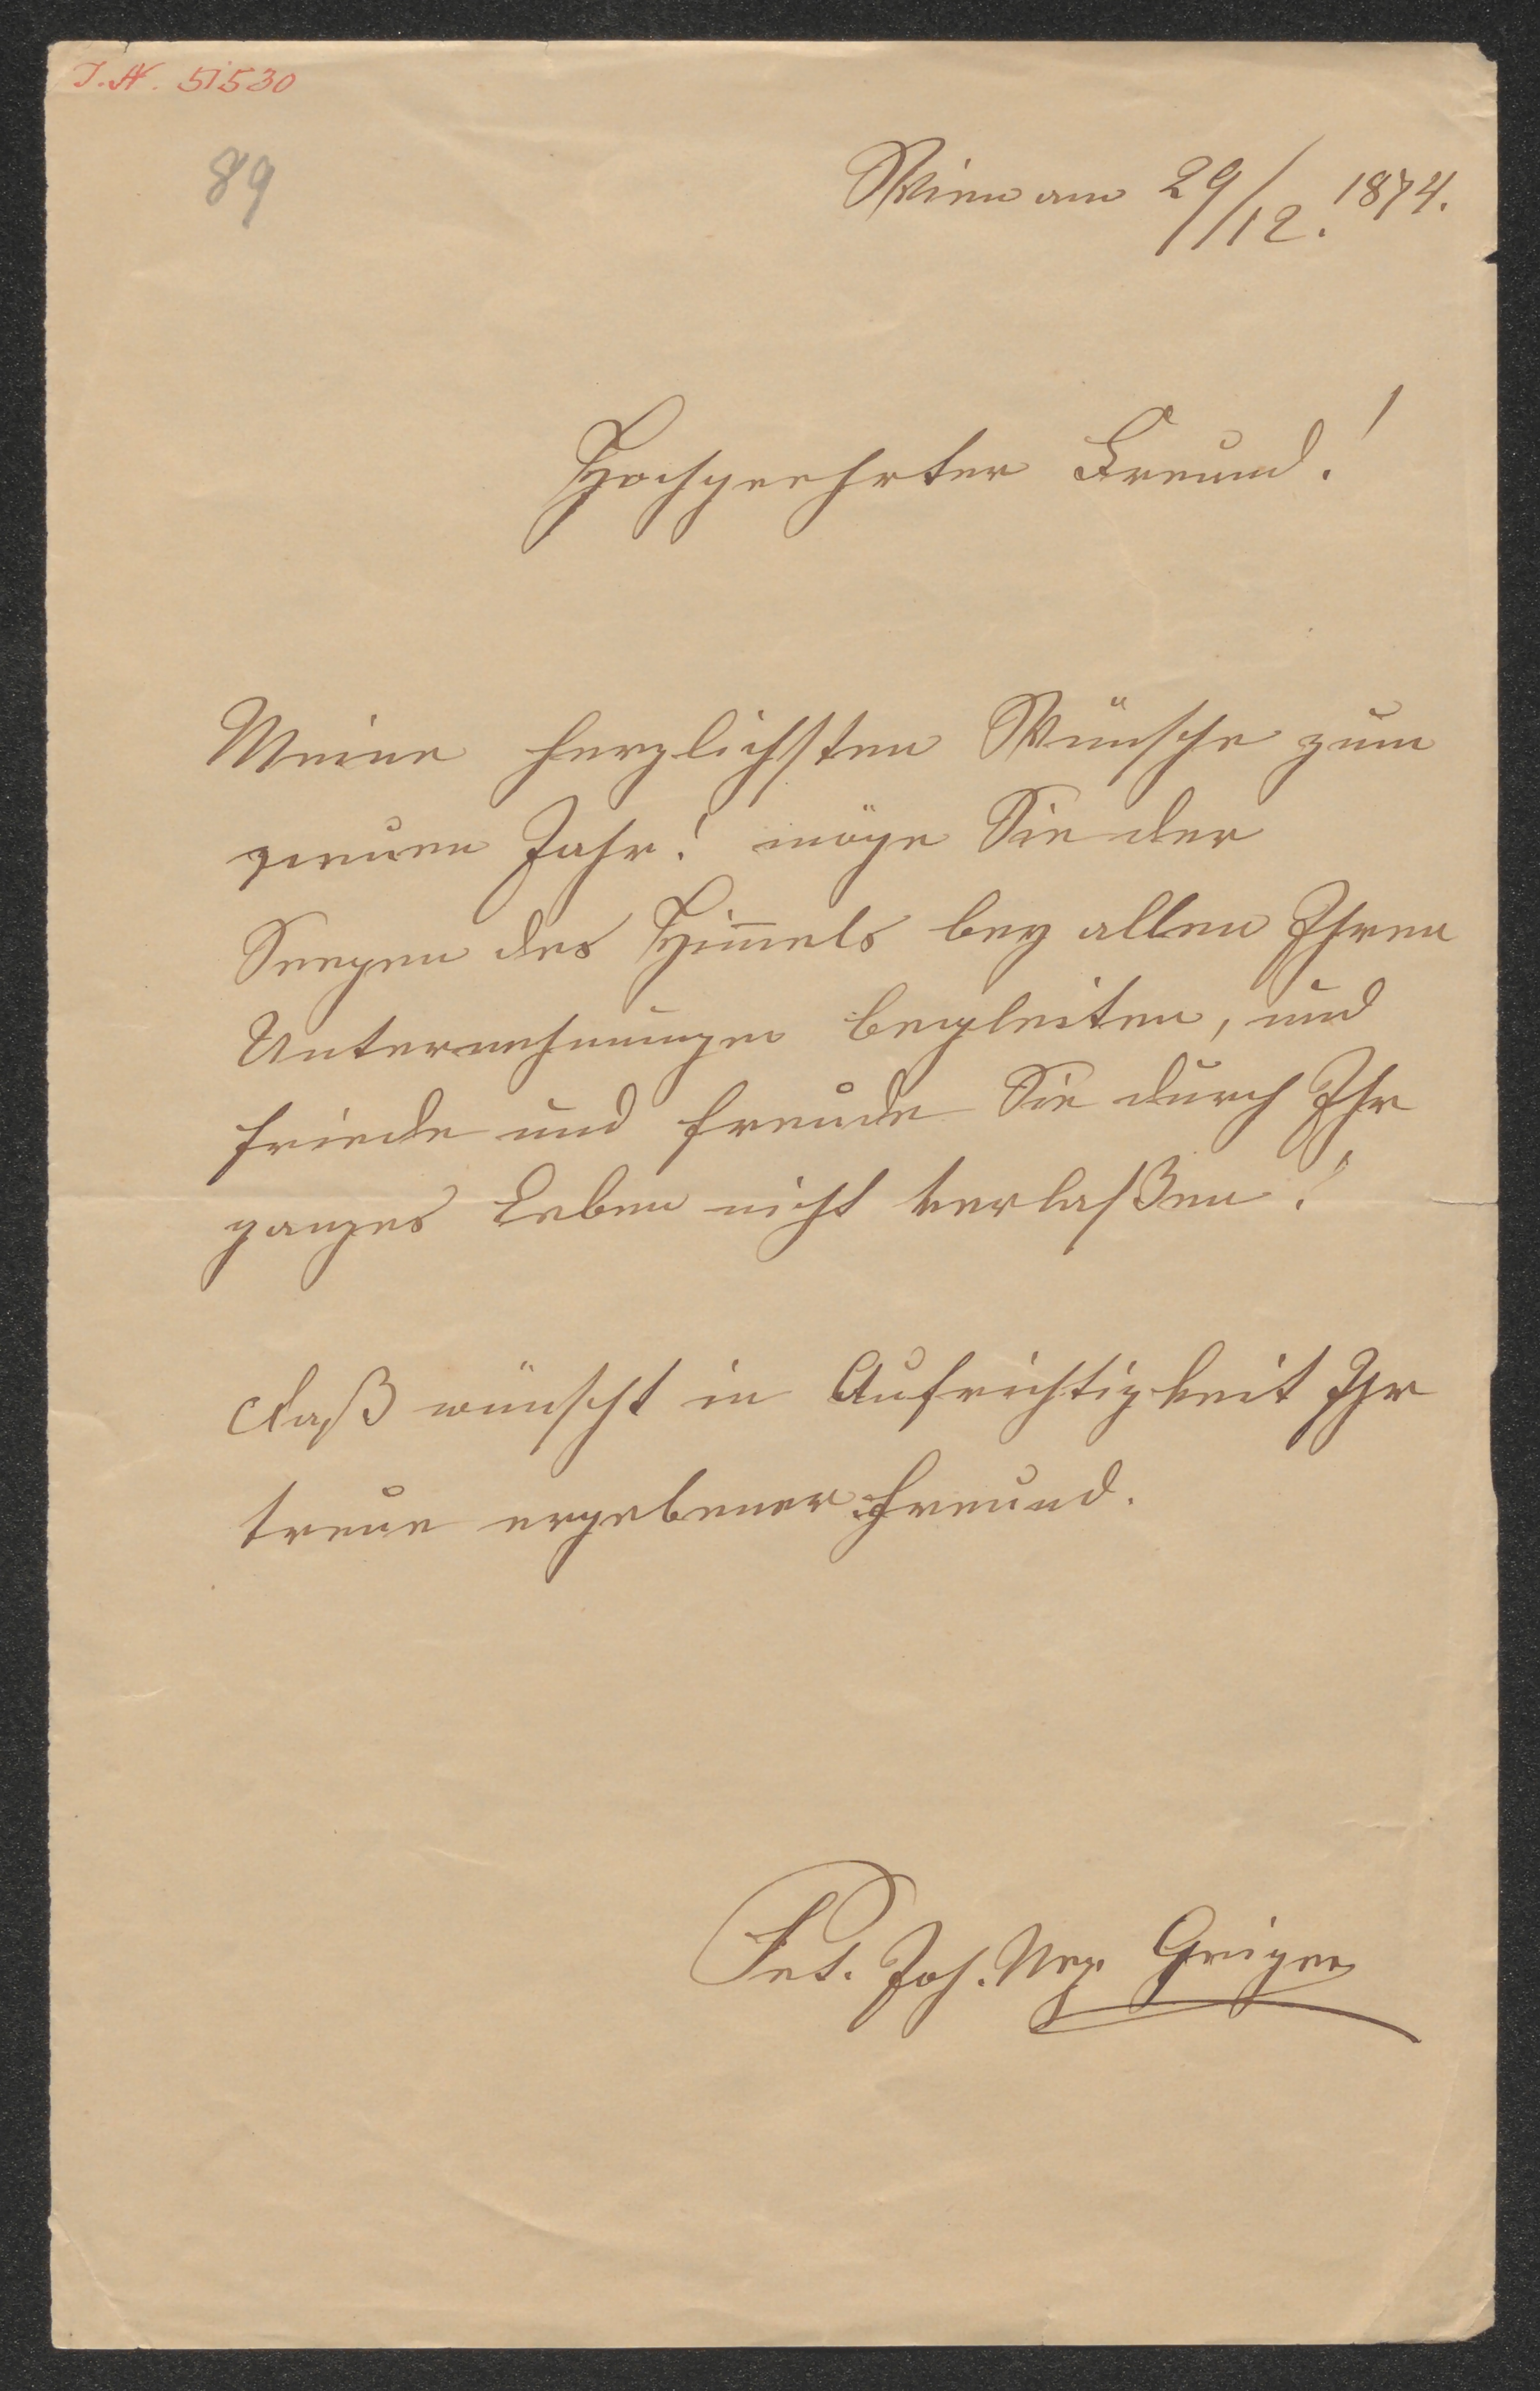 I.N. 51530
89
Wien am 29/12. 1874.
Hochgeehrter Freund!
Meine herzlichsten Wünsche zum
neuen Jahr! möge Sie der
Seegen des Him̅els bey allen Ihren
Unternehmungen begleiten, und
Friede und Freude Sie durch Ihr
ganzes Leben nicht verlaßen!
daß wünscht in Aufrichtigkeit Ihr
treue ergebener Freund.
Joh. Nep. Geiger